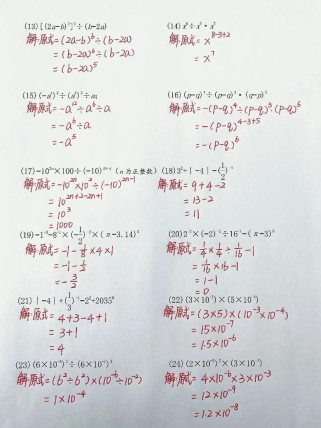 (13) [(2a-b)³]²÷(b-2a)
解:原式=(2a-b)⁶÷(b-2a)
=(b-2a)⁶÷(b-2a)
=(b-2a)⁵
(14) x⁸÷x³·x²
解:原式=x⁸⁻³⁺²
=x⁷
(15)
解:原式=-a¹²÷a⁶÷a
=-a⁶÷a
=-a⁵
(16)
解:原式=-(p-q)⁴÷(p-q)³(p-q)⁵
=-(p-q)⁴⁻³⁺⁵
=-(p-q)⁶
(17)-10²ⁿ×100÷(-10)²ⁿ⁻¹ (n为正整数)
解:原式=-10²ⁿ×10²÷(-10)²ⁿ⁻¹
=10²ⁿ⁺²⁻²ⁿ⁺¹
=10³
=1000
(18)3²+|-4|-(1/2)⁻¹
解:原式=9+4-2
=13-2
=11
(19)
解:原式=-1-1/8×4×1
=-1-1/2
=-3/2
(20)2⁻²×(-2)⁻²÷16⁻¹-(π-3)⁰
解:原式=1/4×1/4÷1/16-1
=1/16×16-1
=1-1
=0
(21) |-4|+(1/3)⁻¹-2²+2035⁰
解:原式=4+3-4+1
=3+1
=4
(22) (3×10⁻³)×(5×10⁻⁴)
解:原式=(3×5)×(10⁻³×10⁻⁴)
=15×10⁻⁷
=1.5×10⁻⁶
(23)
解:原式=(6²÷6²)×(10⁻⁶÷10⁻²)
=1×10⁻⁴
(24) (2×10⁻³)²×(3×10⁻³)
解:原式=4×10⁻⁶×3×10⁻³
=12×10⁻⁹
=1.2×10⁻⁸